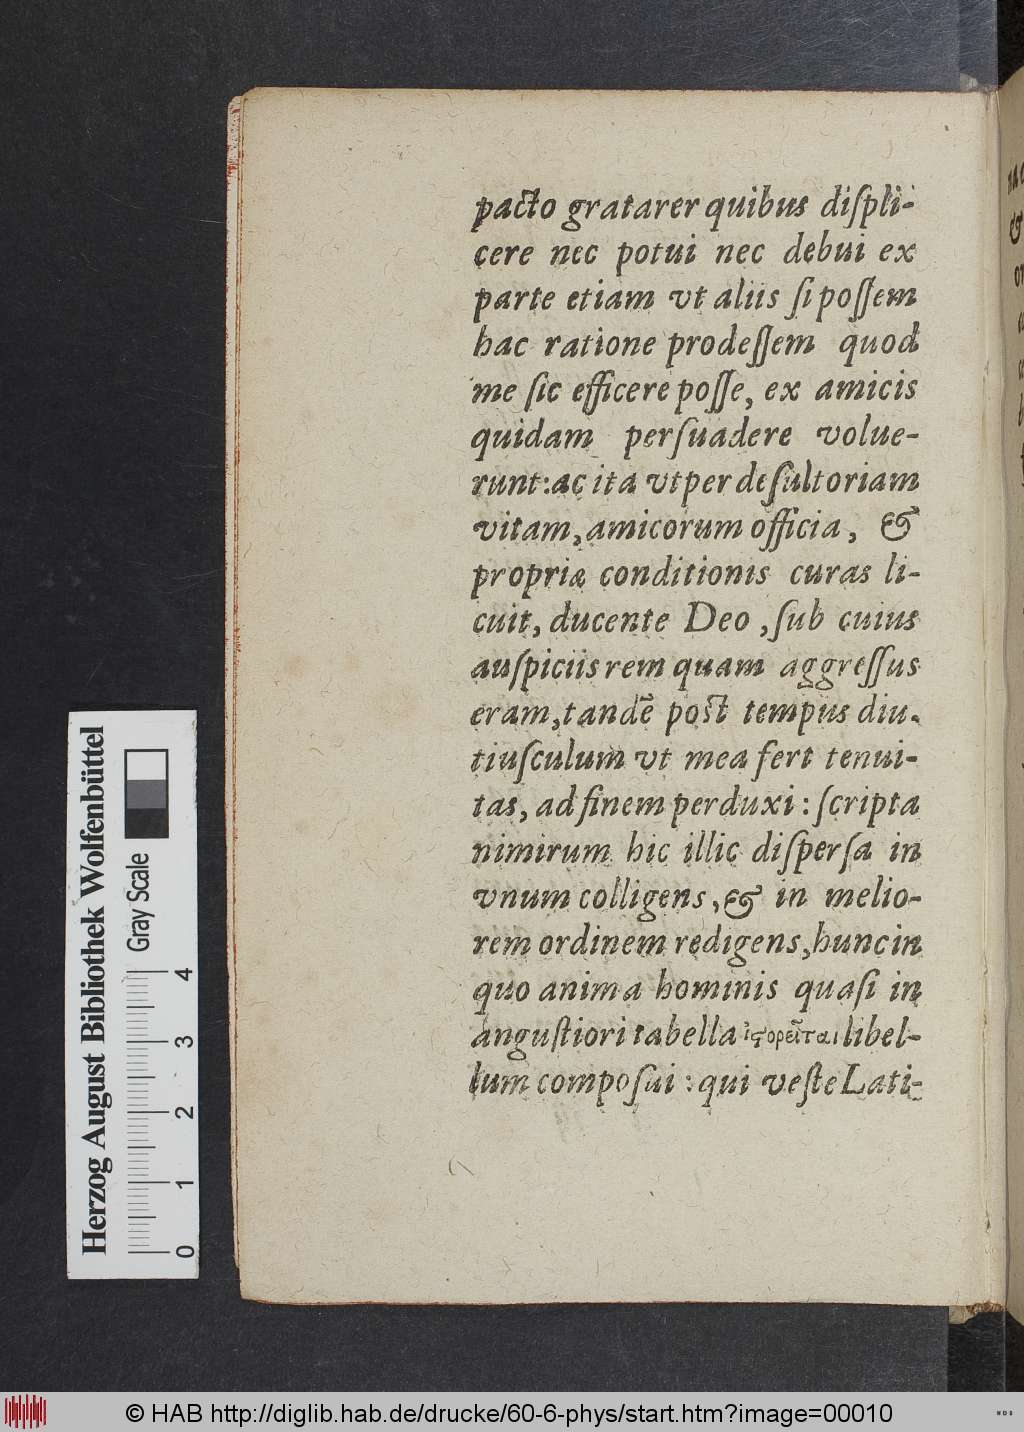 pacto gratarer quibus diſpli-
cere nec potui nec debui ex
parte etiam vt aliis ſi poſſem
hac ratione prodeſſem quod
me ſic efficere poſſe, ex amicis
quidam perſuadere volue-
runt: ac ita vt per deſultoriam
vitam, amicorum officia, &
propriæ conditionis curas li-
cuit, ducente Deo, ſub cuius
auſpiciis rem quam aggreſſus
eram, tandē poſt tempus diu-
tiuſculum vt mea fert tenui-
tas, ad finem perduxi: ſcripta
nimirum hic illic diſperſa in
vnum colligens, & in melio-
rem ordinem redigens, hunc in
quo anima hominis quaſi in
anguſtiori tabella ἱϛορεῖται libel-
lum compoſui: qui veſte Lati-
Herzog August Bibliothek Wolfenbüttel
Gray Scale
0 1 2 3 4
© HAB http://diglib.hab.de/drucke/60-6-phys/start.htm?image=00010